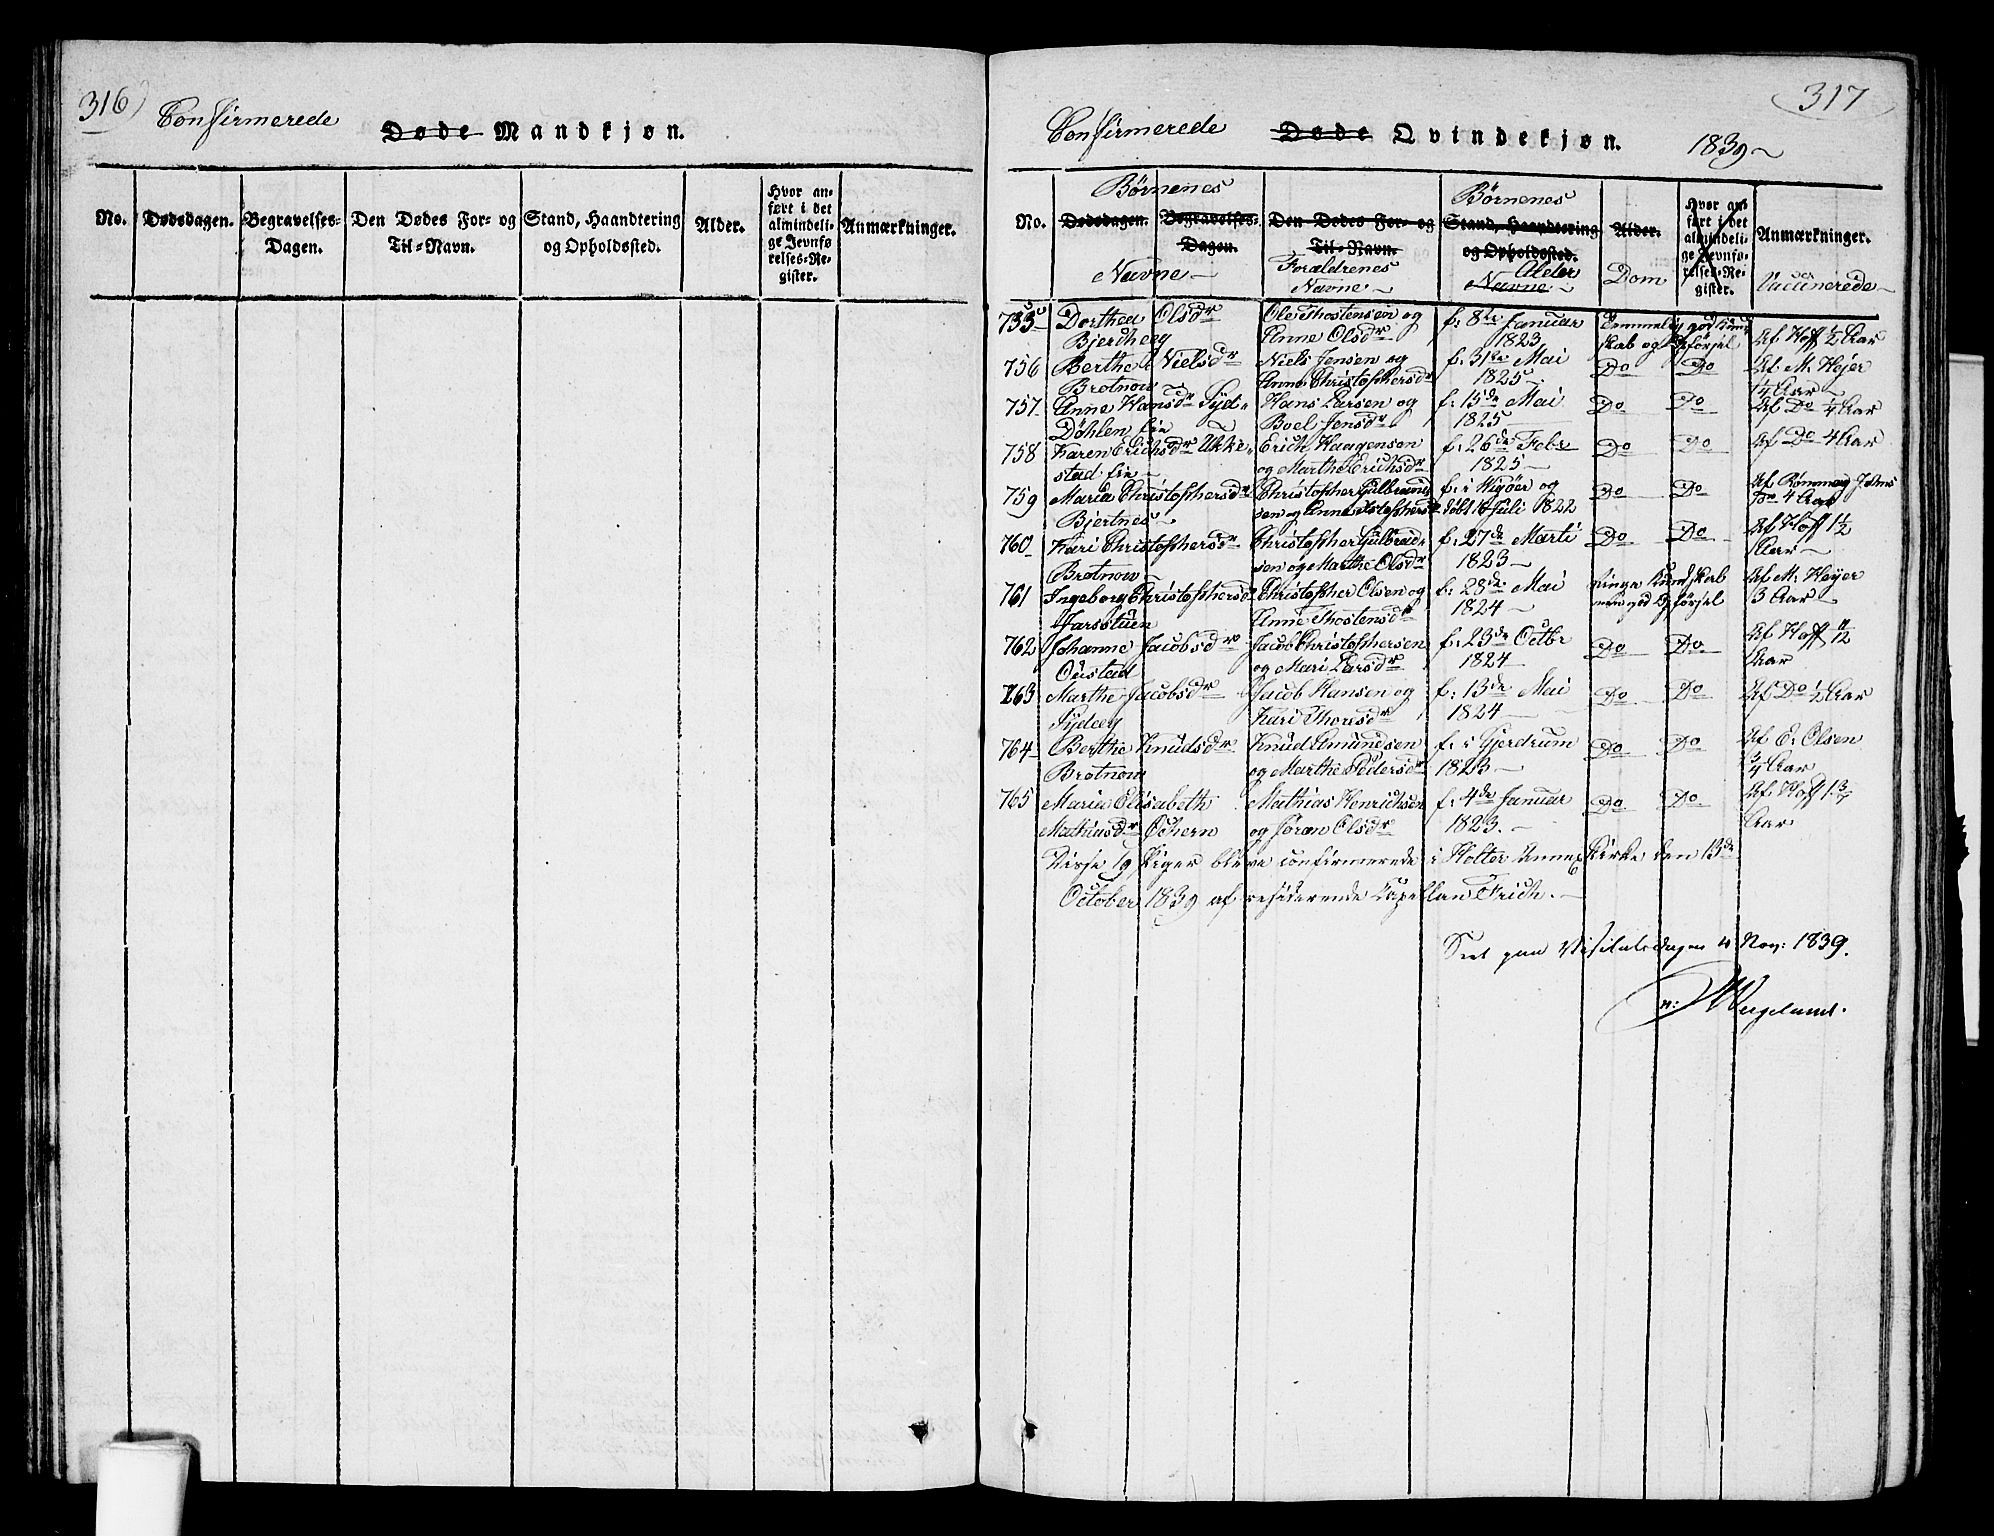 316)
Confirmerede Døde Mandkjøn.
No. Dødsdagen. Begravelses-Dagen. Den Dødes For- og Til-Navn. Stand, Haandtering og Opholdssted. Alder. Hvor anført i det almindelige Jevnførelses-Register. Anmærkninger.
317
Confirmerede Døde Qvindekjøn. 1839
Børnenes Børnenes
No. Dødsdagen. Begravelses-Dagen. Den Dødes For- og Til-Navn. Stand, Haandtering og Opholdssted. Alder. Hvor anført i det almindelige Jevnførelses-Register. Anmærkninger.
Navne Forældrenes Navne Alder Navne Dom Vaccinerede
755 Dorthea Olsdr Ole Thostensen og f: 8de Januar Temmelig god Kund- Af Hoff 1/2 Aar
Bjerkeeg Anne Olsdr 1823 skab og Opførsel
756 Berthe Nielsdr Niels Jensen og f: 31te Mai Do Do Af M. Højer
Brotnow Anne Christophersdr 1825 1/4 Aar
757 Anne Hansdr Syd- Hans Larsen og f: 15de Mai Do Do Af Do 1/4 Aar
Døhlen Eie Boel Jensdr 1825
758 Karen Erichsdr Ukke- Erich Haagensen f: 26de Febr Do Do Af Do 4 Aar
stad Eie og Marthe Erichsdr 1825
759 Maria Christophersdr Christopher Gulbrand- f: i Wigøer og Do Do Af
Bjertnes sen og Anne døbt Juli 1822 4 Aar
760 Kari Christophersdr Christopher Gulbrand- f: 27de Marti Do Do Af Hoff 1 1/2
Brotnow sen og Marthe Olsdr 1823 Aar
761 Ingeborg Christophersdr Christopher Olsen og f: 28de Mai Ringe Kundskab Af M: Heyer
Harsstuen Anne Thostensdr 1824 men god Opførsel 3 Aar
762 Johanne Jacobsdr Jacob Christophersen f: 23de Octbr Do Do Af Hoff 11/12
Oustad og Mari Larsdr 1824 Aar
763 Marthe Jacobsdr Jacob Hansen og f: 13de Mai Do Do Af Do 1/2 Aar
Sydeeg Kari Thoresdr 1824
764 Berthe Knudsdr Knud Amundsen f: i Gjerdrum Do Do Af E: Olsen
Brotnow og Marthe Pedersdr 1823 3/4 Aar
765 Maria Elisabeth Mathias Henrichsen f: 4de Januar Do Do Af Hoff 1 3/4
Mathiasdr Ochern og Soran Olsdr 1823. Aar
Disse 19 Piger bleve confirmerede i Holter Annex Kirke den 13de
October 1839 af residerende Capellan Frich.
Seet paa Visitatsdagen 4 Nov: 1839.
n: Wegeland.